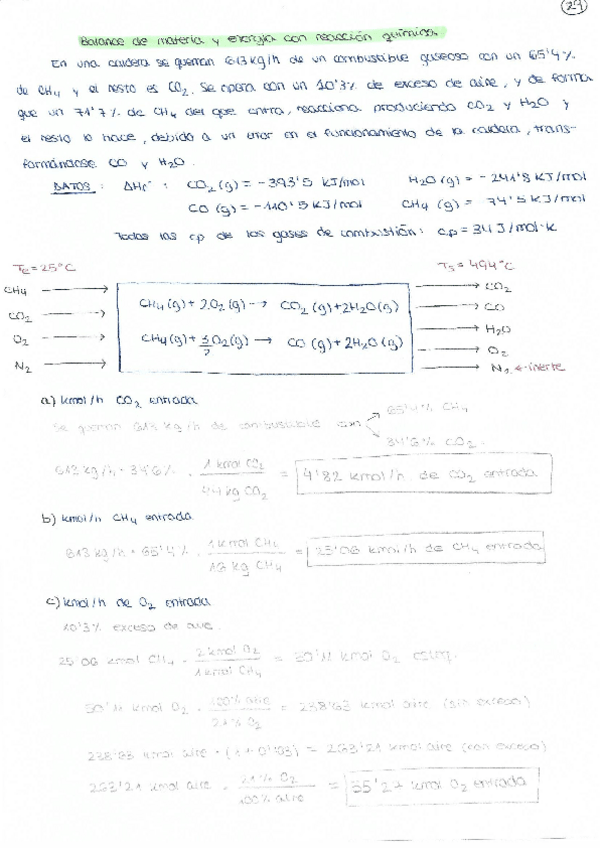 29
Balance de materia y energía con reacción química
En una caldera se queman 613 kg/h de un combustible gaseoso con un 65'4%
de CH4 y el resto es CO2. Se opera con un 10'3% de exceso de aire, y de forma
que un 71'7% de CH4 del que entra, reacciona produciendo CO2 y H2O y
el resto lo hace, debido a un error en el funcionamiento de la caldera, trans-
formándose CO y H2O.
DATOS: ΔHf°: CO2(g) = -393'5 KJ/mol H2O(g) = -241'8 KJ/mol
CO(g) = -110'5 KJ/mol CH4(g) = 74'5 KJ/mol
Todas las cp de los gases de combustión: cp = 34 J/mol·K
TE = 25°C TS = 494°C
CH4 → CH4(g) + 2O2(g) → CO2(g) + 2H2O(g) → CO2
CO2 → → CO
O2 → CH4(g) + 3/2 O2(g) → CO(g) + 2H2O(g) → H2O
→ O2
N2 → → N2 ← inerte
a) kmol/h CO2 entrada
Se queman 613 kg/h de combustible con 65'4% CH4
34'6% CO2.
613 kg/h · 34'6% · 1 kmol CO2 / 44 kg CO2 = 4'82 kmol/h de CO2 entrada
b) kmol/h CH4 entrada
613 kg/h · 65'4% · 1 kmol CH4 / 16 kg CH4 = 25'06 kmol/h de CH4 entrada
c) kmol/h de O2 entrada
10'3% exceso de aire.
25'06 kmol CH4 · 2 kmol O2 / 1 kmol CH4 = 50'11 kmol O2 esteq.
50'11 kmol O2 · 100% aire / 21% O2 = 238'63 kmol aire (sin exceso)
238'63 kmol aire · (1 + 0'103) = 263'21 kmol aire (con exceso)
263'21 kmol aire · 21% O2 / 100% aire = 55'27 kmol O2 entrada